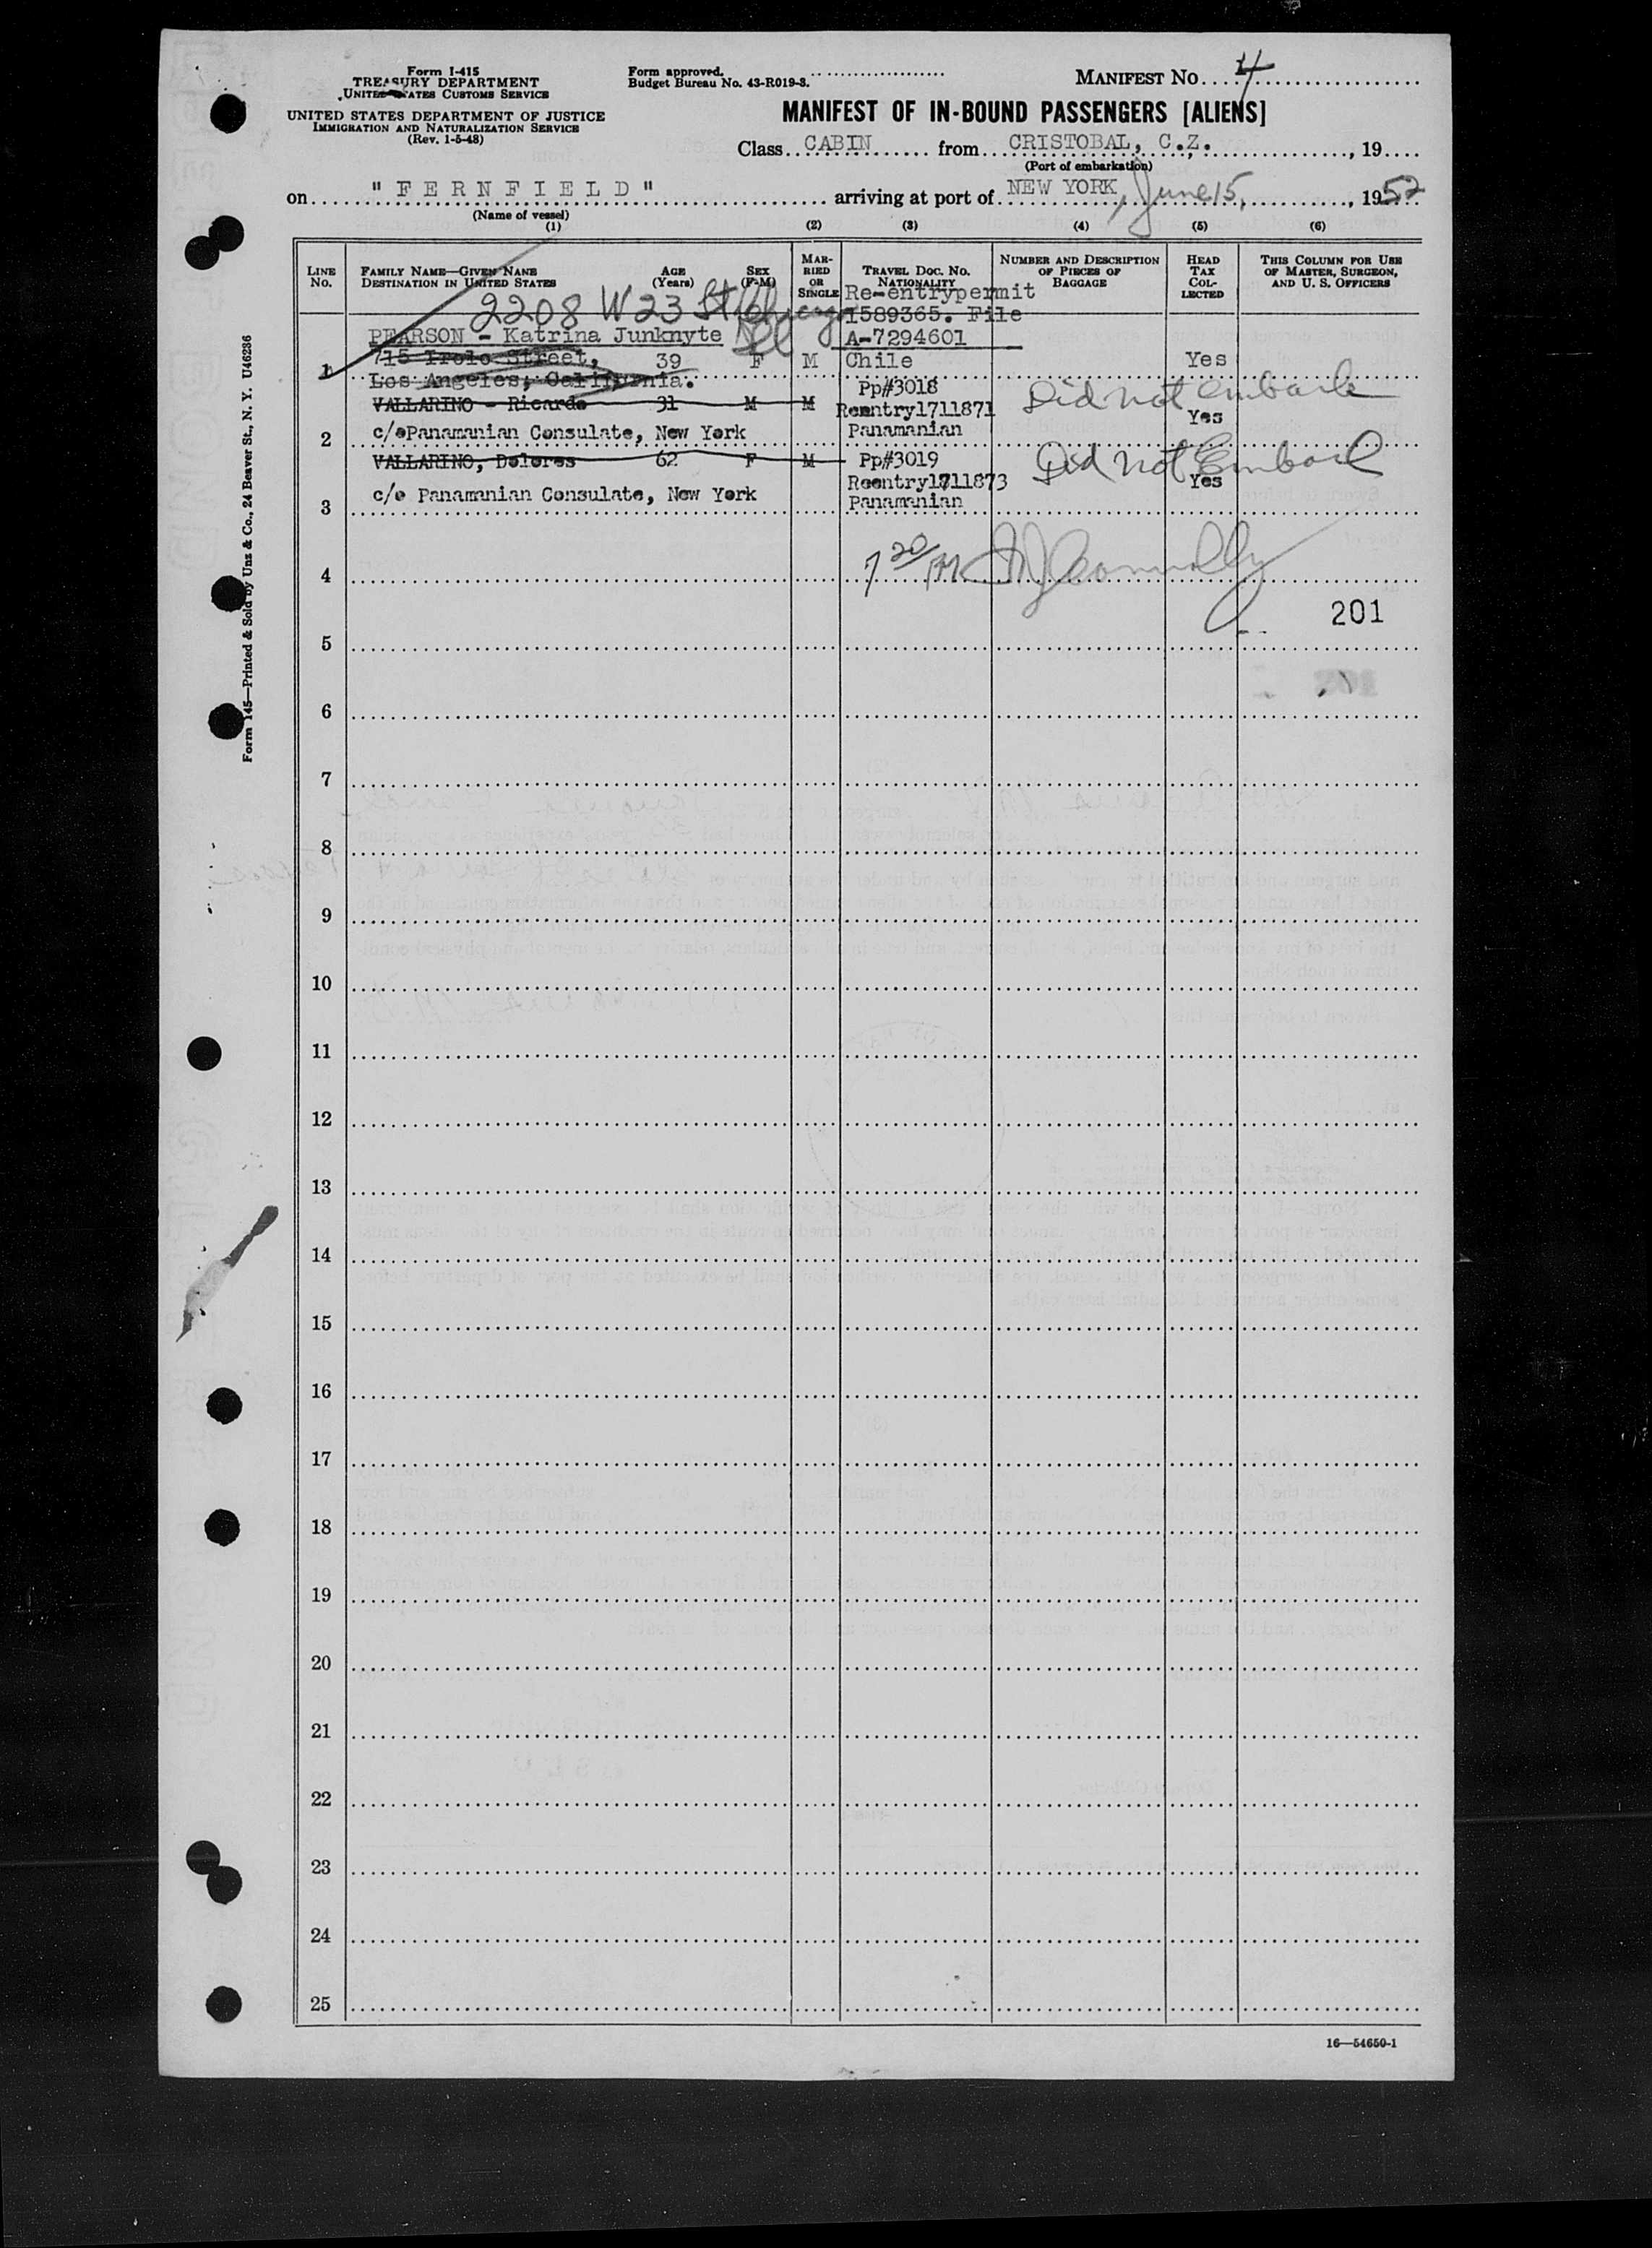 Form I-415
TREASURY DEPARTMENT
UNITED STATES CUSTOMS SERVICE
UNITED STATES DEPARTMENT OF JUSTICE
IMMIGRATION AND NATURALIZATION SERVICE
(Rev. 1-5-48)
Form approved.
Budget Bureau No. 43-R019-3.
MANIFEST NO. 4
MANIFEST OF IN-BOUND PASSENGERS [ALIENS]
Class CABIN from CRISTOBAL, C.Z. , 19
(Port of embarkation)
on "FERNFIELD" arriving at port of NEW YORK, June 15, , 1952
(Name of vessel)
(1) (2) (3) (4) (5) (6)
LINE NO.
FAMILY NAME—GIVEN NAME
DESTINATION IN UNITED STATES
AGE (Years)
SEX (F-M)
MARRIED OR SINGLE
TRAVEL DOC. NO.
NATIONALITY
NUMBER AND DESCRIPTION OF PIECES OF BAGGAGE
HEAD TAX COLLECTED
THIS COLUMN FOR USE OF MASTER, SURGEON, AND U. S. OFFICERS
2208 W 23 St Chicago Ill
Re-entrypermit
1589365. File
PEARSON - Katrina Junknyte A-7294601
1 715 Irolo Street, 39 F M Chile Yes
Los Angeles, California.
Pp#3018 Did not embark
VALLARINO - Ricardo 31 M M Reentry1711871 Yes
2 c/o Panamanian Consulate, New York Panamanian
VALLARINO, Dolores 62 F M Pp#3019 Did not Embark
Reentry1711873 Yes
3 c/o Panamanian Consulate, New York Panamanian
4 7 20/
201
5
6
7
8
9
10
11
12
13
14
15
16
17
18
19
20
21
22
23
24
25
16—54650-1
Form 145—Printed & Sold by Unz & Co., 24 Beaver St., N. Y. U46236